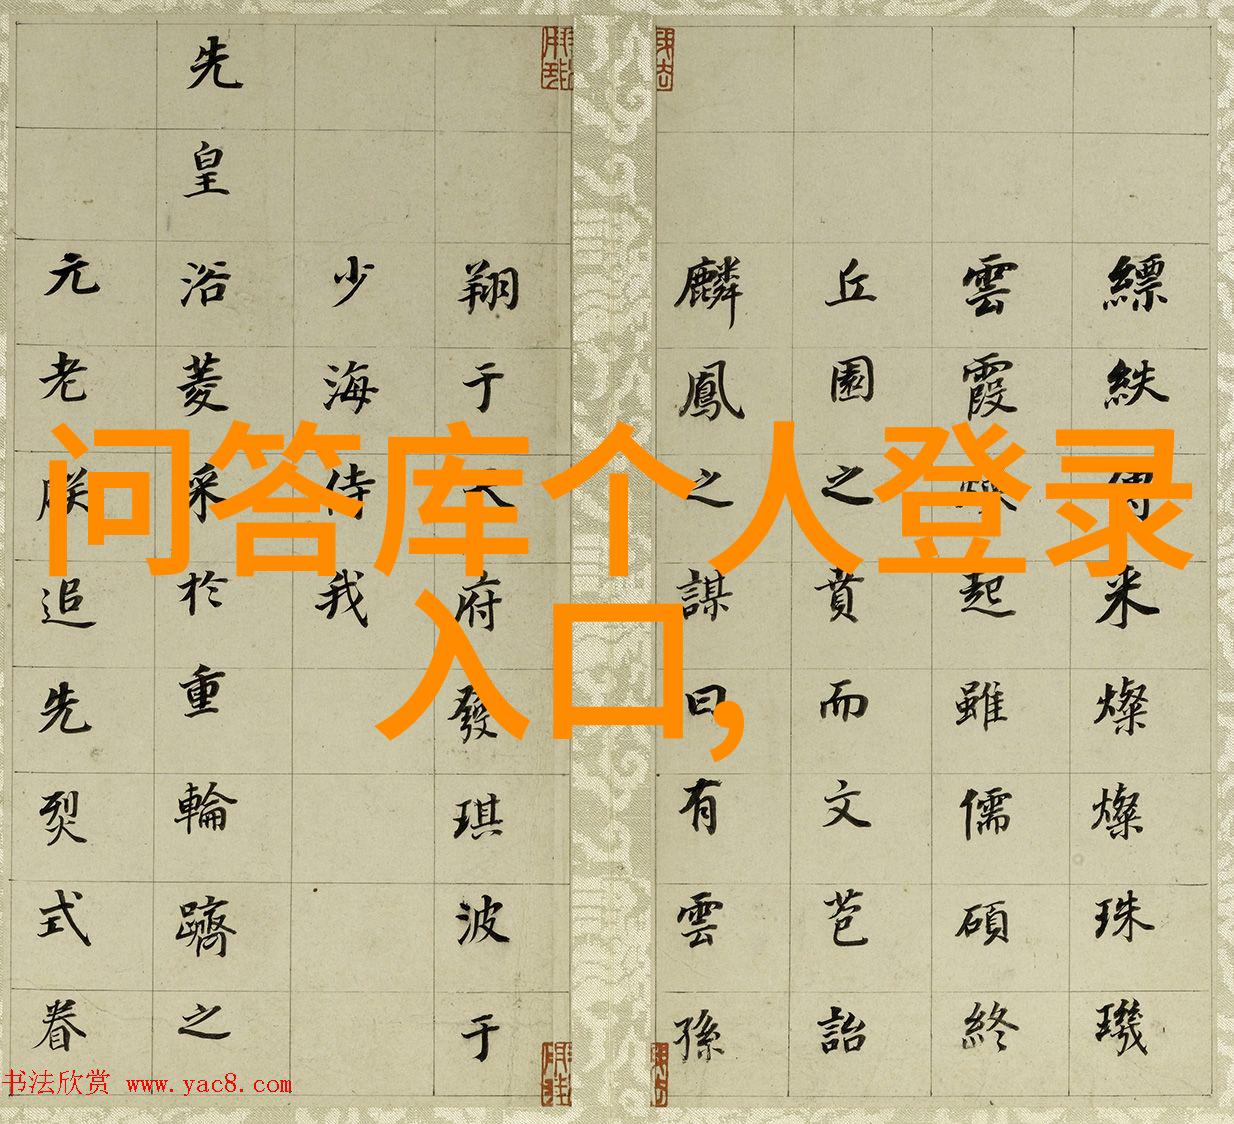 问答库个人登录
入口,
縹紩傳米燦燦珠璣
雲霞 起雖儒碩終
丘園之賁而文芭詒
麟鳳之謀曰有雲孫
翔于 府發琪波于
少海侍我
先皇浴菱采於重輪躋之
元老朕追先烈式眷
书法欣赏 www.yac8.com